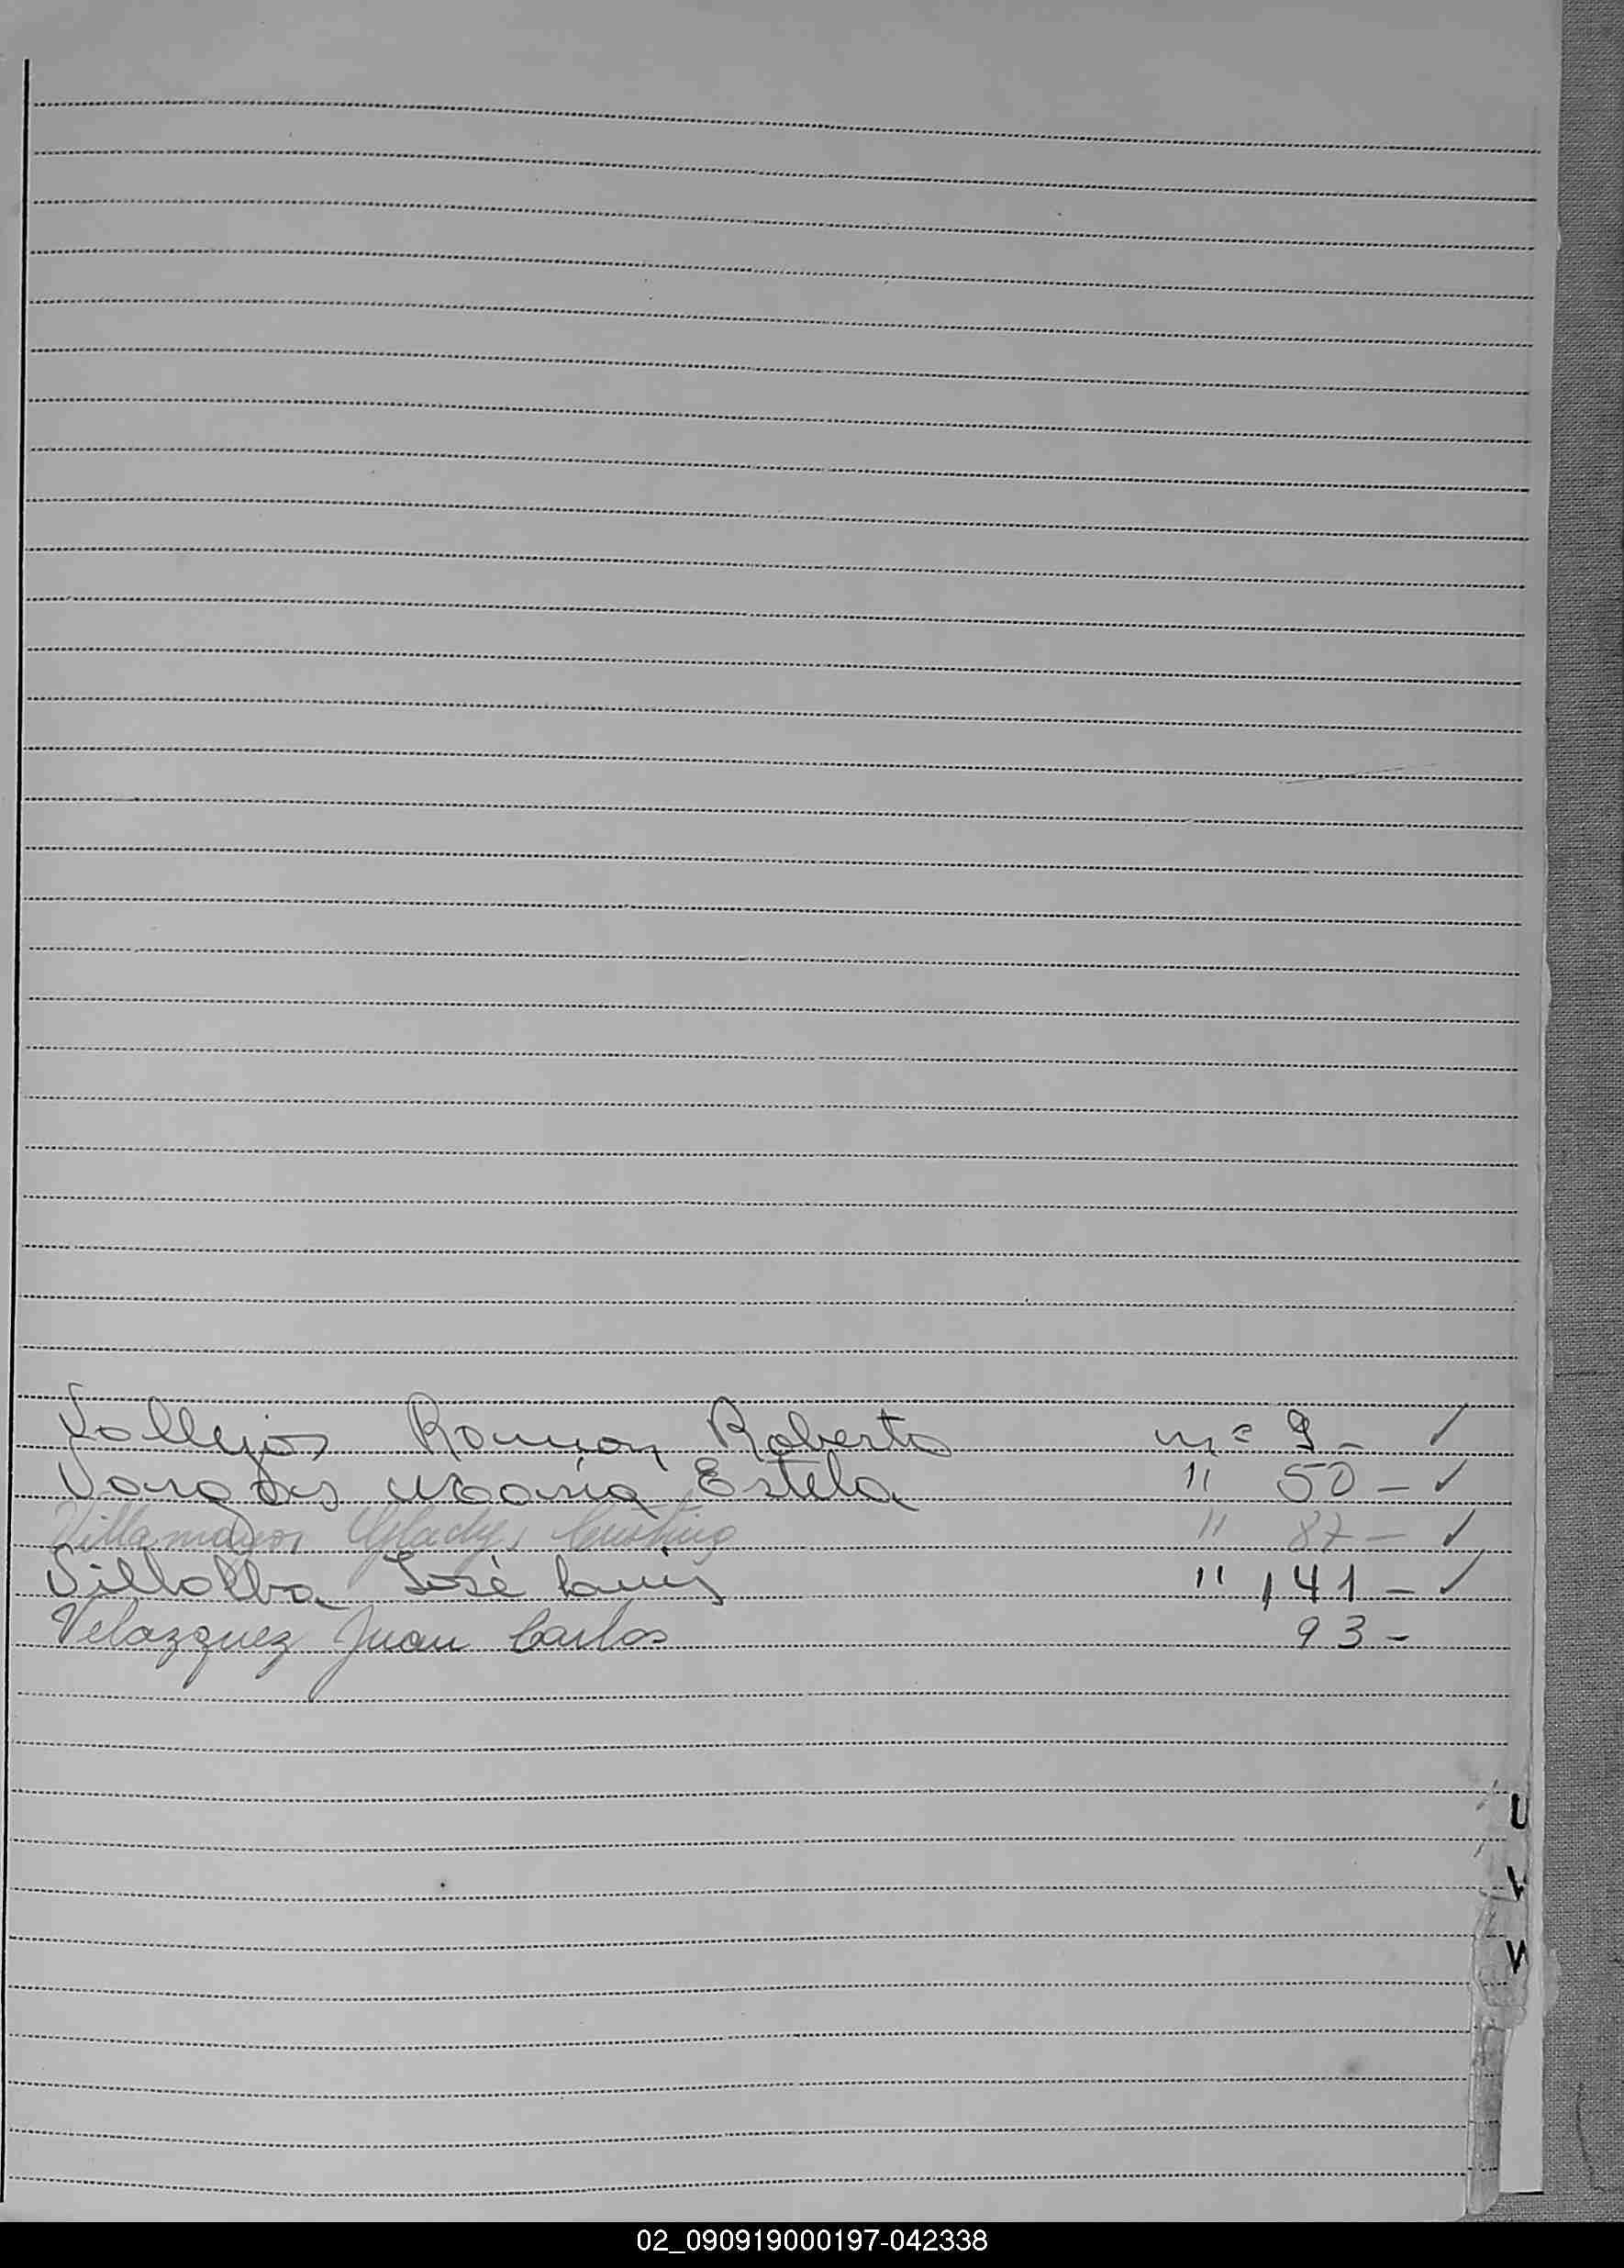 Vallejos Ramon Roberto nº 9 - ✓
Vargas María Estela " 50 - ✓
Villamayor Gladys Cristina " 87 - ✓
Villalba José Luis " 141 - ✓
Velazquez Juan Carlos 93 -
U
V
W
02_090919000197-042338